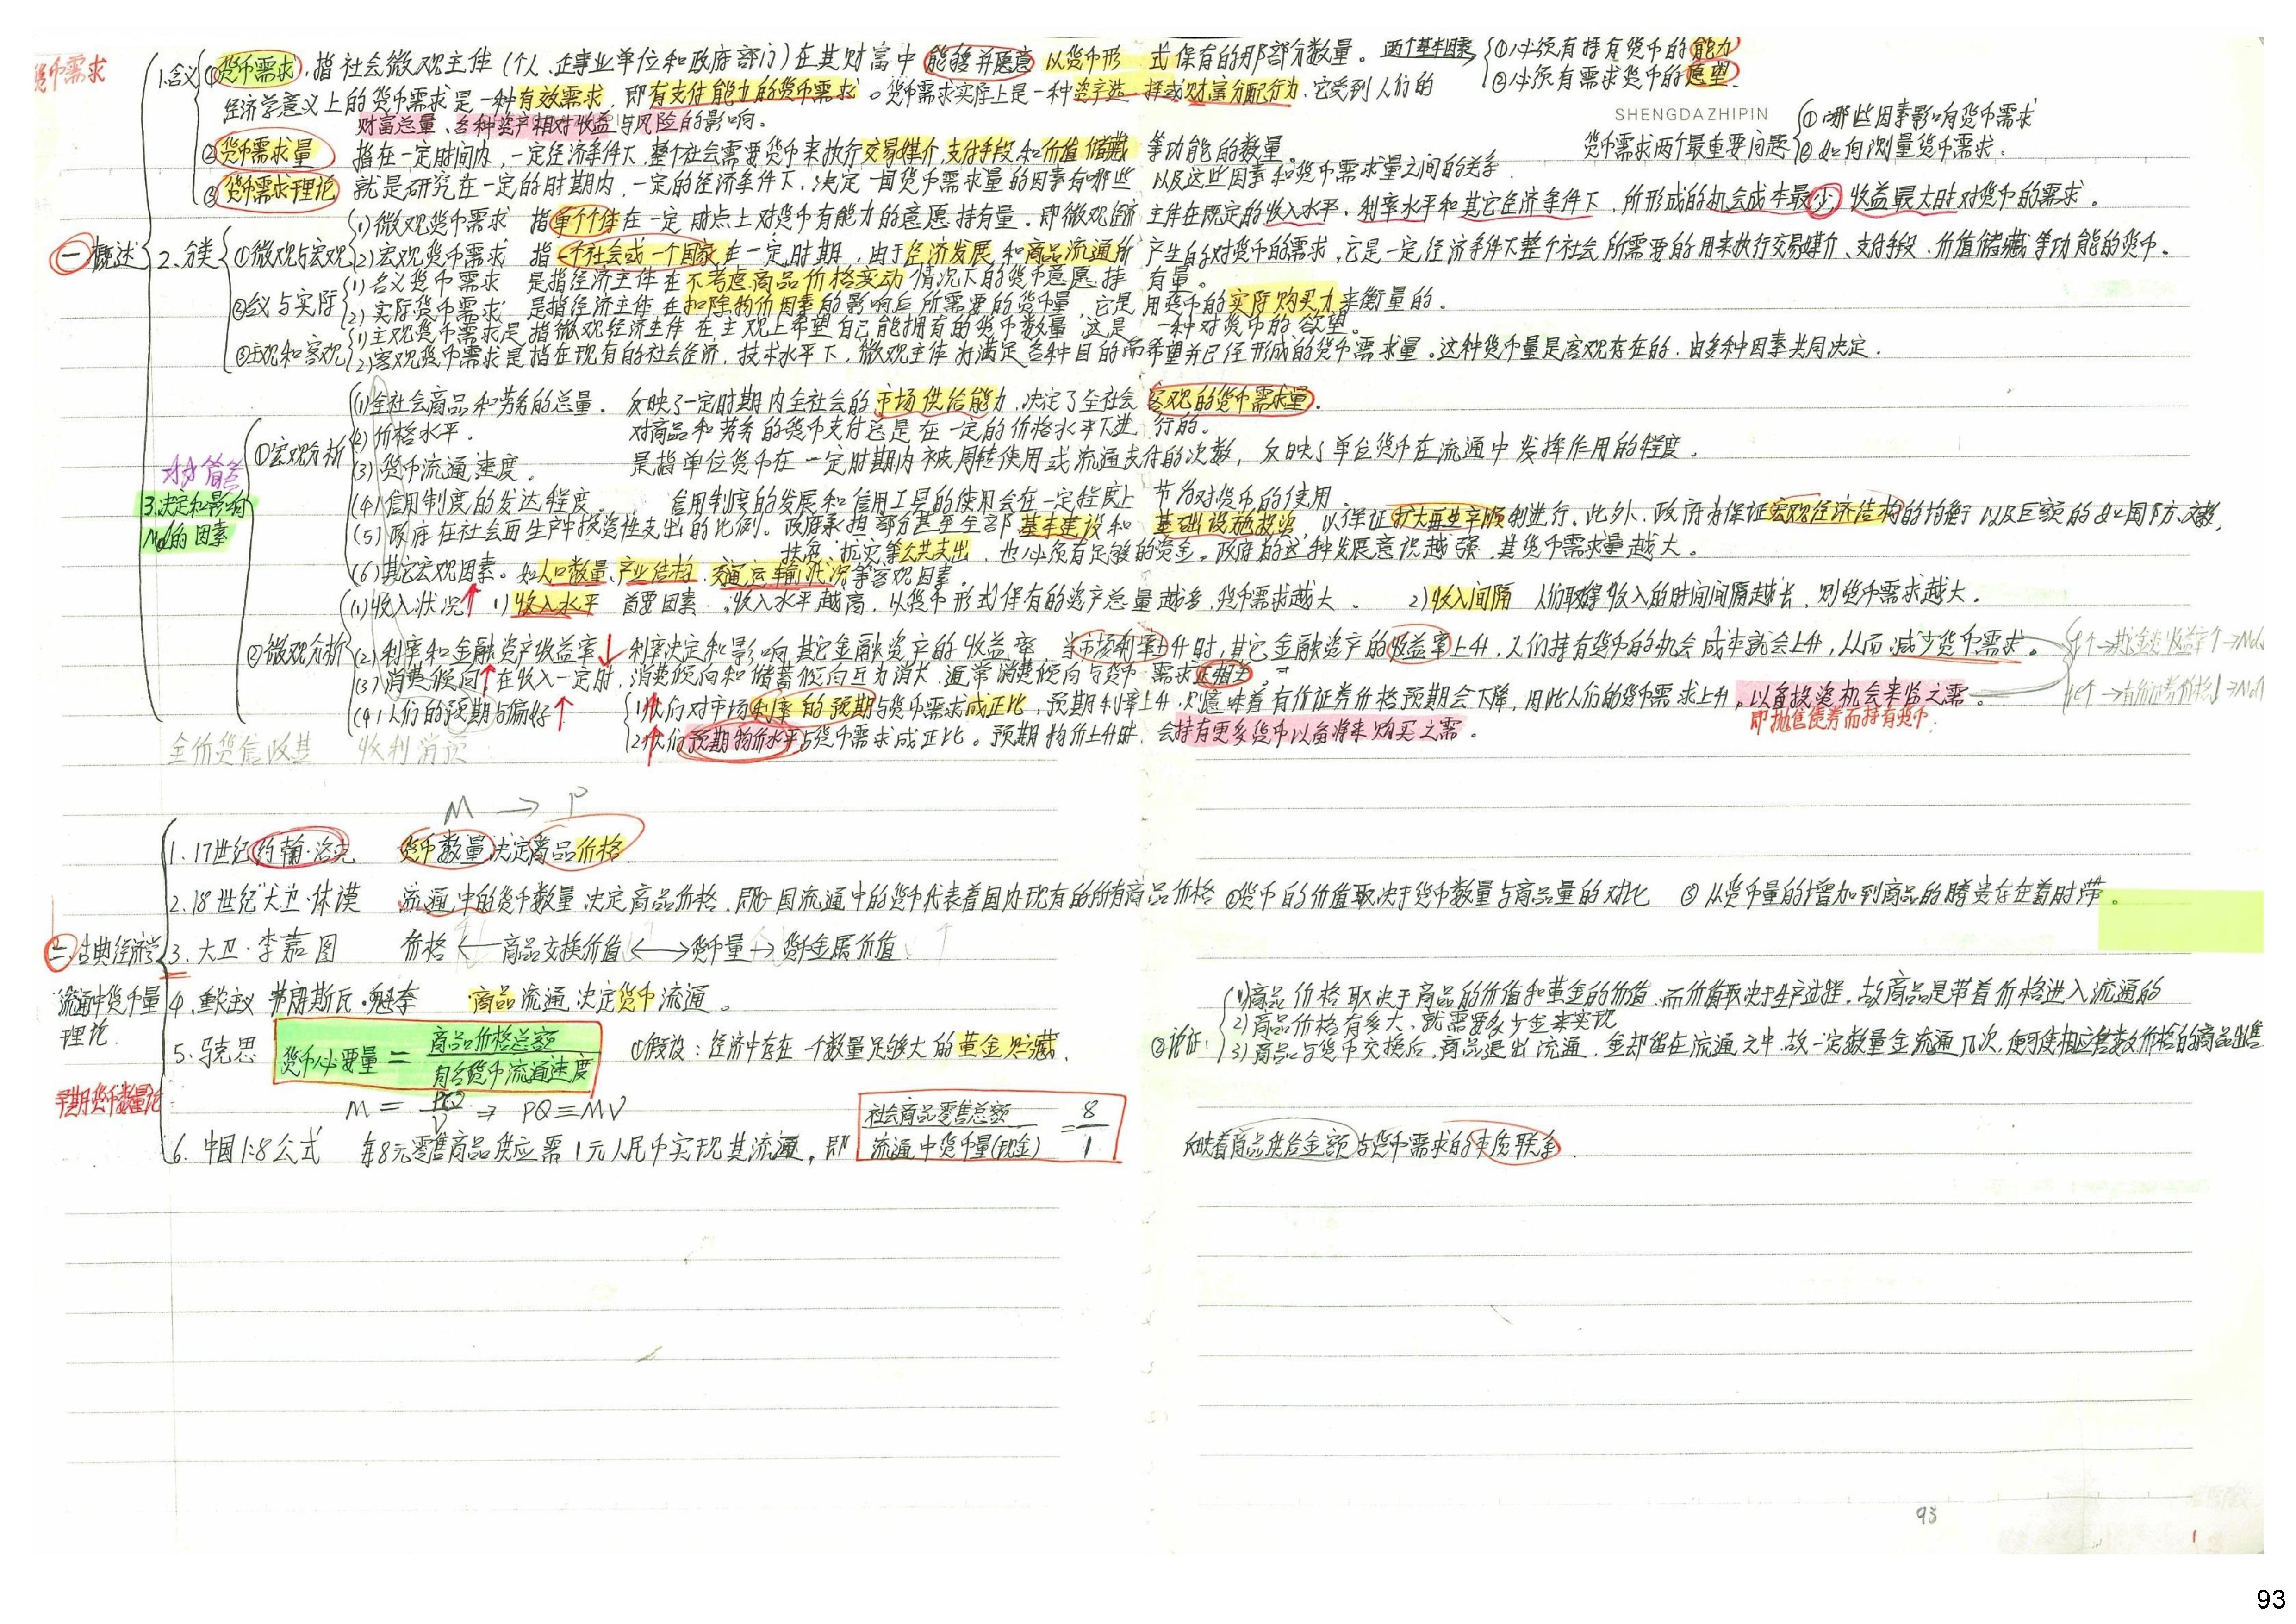 货币需求
1.含义
①货币需求,指社会微观主体(个人、企事业单位和政府部门)在其财富中能够并愿意以货币形式保有的那部分数量。两个基本因素 ①必须有持有货币的能力
②必须有需求货币的愿望.
经济学意义上的货币需求是一种有效需求,即有支付能力的货币需求。货币需求实际上是一种资产选择或财富分配行为,它受到人们的
财富总量、各种资产相对收益与风险的影响。
SHENGDAZHIPIN
货币需求两个最重要问题 ①哪些因素影响货币需求
②如何测量货币需求.
②货币需求量 指在一定时间内,一定经济条件下,整个社会需要货币来执行交易媒介,支付手段和价值储藏等功能的数量。
③货币需求理论 就是研究在一定的时期内,一定的经济条件下,决定一国货币需求量的因素有哪些 以及这些因素和货币需求量之间的关系.
㊀概述
2.分类
①微观与宏观
(1)微观货币需求 指单个个体在一定时点上对货币有能力的意愿持有量.即微观经济主体在既定的收入水平、利率水平和其它经济条件下,所形成的机会成本最少,收益最大时对货币的需求。
(2)宏观货币需求 指一个社会或一个国家在一定时期,由于经济发展和商品流通所产生的对货币的需求,它是一定经济条件下整个社会所需要的用来执行交易媒介、支付手段、价值储藏等功能的货币。
②名义与实际
(1)名义货币需求 是指经济主体在不考虑商品价格变动情况下的货币意愿持有量。
(2)实际货币需求 是指经济主体在扣除物价因素的影响后所需要的货币量,它是用货币的实际购买力来衡量的。
③主观和客观
(1)主观货币需求是指微观经济主体在主观上希望自己能拥有的货币数量,这是一种对货币的欲望。
(2)客观货币需求是指在现有的社会经济,技术水平下,微观主体为满足各种目的而希望并已经形成的货币需求量。这种货币量是客观存在的.由多种因素共同决定.
3.决定和影响
Md的因素
①宏观分析
(1)全社会商品和劳务的总量. 反映了一定时期内全社会的市场供给能力,决定了全社会客观的货币需求量.
(2)价格水平. 对商品和劳务的货币支付总是在一定的价格水平下进行的。
(3)货币流通速度. 是指单位货币在一定时期内被周转使用或流通支付的次数,反映了单位货币在流通中发挥作用的程度.
(4)信用制度的发达程度. 信用制度的发展和信用工具的使用会在一定程度上节约对货币的使用
(5)政府在社会再生产中投资性支出的比例。政府承担部分甚至全部基本建设和基础设施投资,以保证扩大再生产顺利进行。此外,政府为保证宏观经济结构的均衡以及巨额的如国防、文教,
扶贫、抗灾等公共支出,也必须有足够的资金。政府的这种发展意识越强,其货币需求量越大。
(6)其它宏观因素。如人口数量、产业结构、交通运输状况等客观因素.
②微观分析
(1)收入状况↑ 1)收入水平 首要因素.收入水平越高,以货币形式保有的资产总量越多,货币需求越大。 2)收入间隔 人们取得收入的时间间隔越长,则货币需求越大。
(2)利率和金融资产收益率↓ 利率决定和影响其它金融资产的收益率,当市场利率上升时,其它金融资产的收益率上升,人们持有货币的机会成本就会上升,从而减少货币需求。
(3)消费倾向↑在收入一定时,消费倾向和储蓄倾向互为消长,通常消费倾向与货币需求正相关.
(4)人们的预期与偏好↑
1)人们对市场利率的预期与货币需求成正比,预期利率上升,则意味着有价证券价格预期会下降,因此人们的货币需求上升,以备投资机会来临之需。
即抛售债券而持有货币.
2)人们预期物价水平与货币需求成正比。预期物价上升时,会持有更多货币以备将来购买之需。
全价货信政其 收利消预
M → P
㊁古典经济学
流通中货币量
理论.
早期货币数量论
1.17世纪约翰·洛克 货币数量决定商品价格.
2.18世纪大卫·休谟 流通中的货币数量决定商品价格.即一国流通中的货币代表着国内现有的所有商品价格 ②货币的价值取决于货币数量与商品量的对比 ③从货币量的增加到商品的腾贵存在着时滞。
3.大卫·李嘉图 价格←商品交换价值←→货币量→货币金属价值
4.重农主义 弗朗斯瓦·魁奈 商品流通决定货币流通。
5.马克思 货币必要量 = 商品价格总额 / 同名货币流通速度 ①假设:经济中存在一个数量足够大的黄金贮藏.
M = PQ/V ⇒ PQ=MV
②论证:
1)商品价格取决于商品的价值和黄金的价值,而价值取决于生产过程,故商品是带着价格进入流通的
2)商品价格有多大,就需要多少金来实现
3)商品与货币交换后,商品退出流通,金却留在流通之中,故一定数量金流通几次,便可使相应倍数价格的商品出售
6.中国1:8公式 每8元零售商品供应需1元人民币实现其流通,即 社会商品零售总额 / 流通中货币量(现金) = 8/1 反映着商品供给金额与货币需求的本质联系.
93
1
93